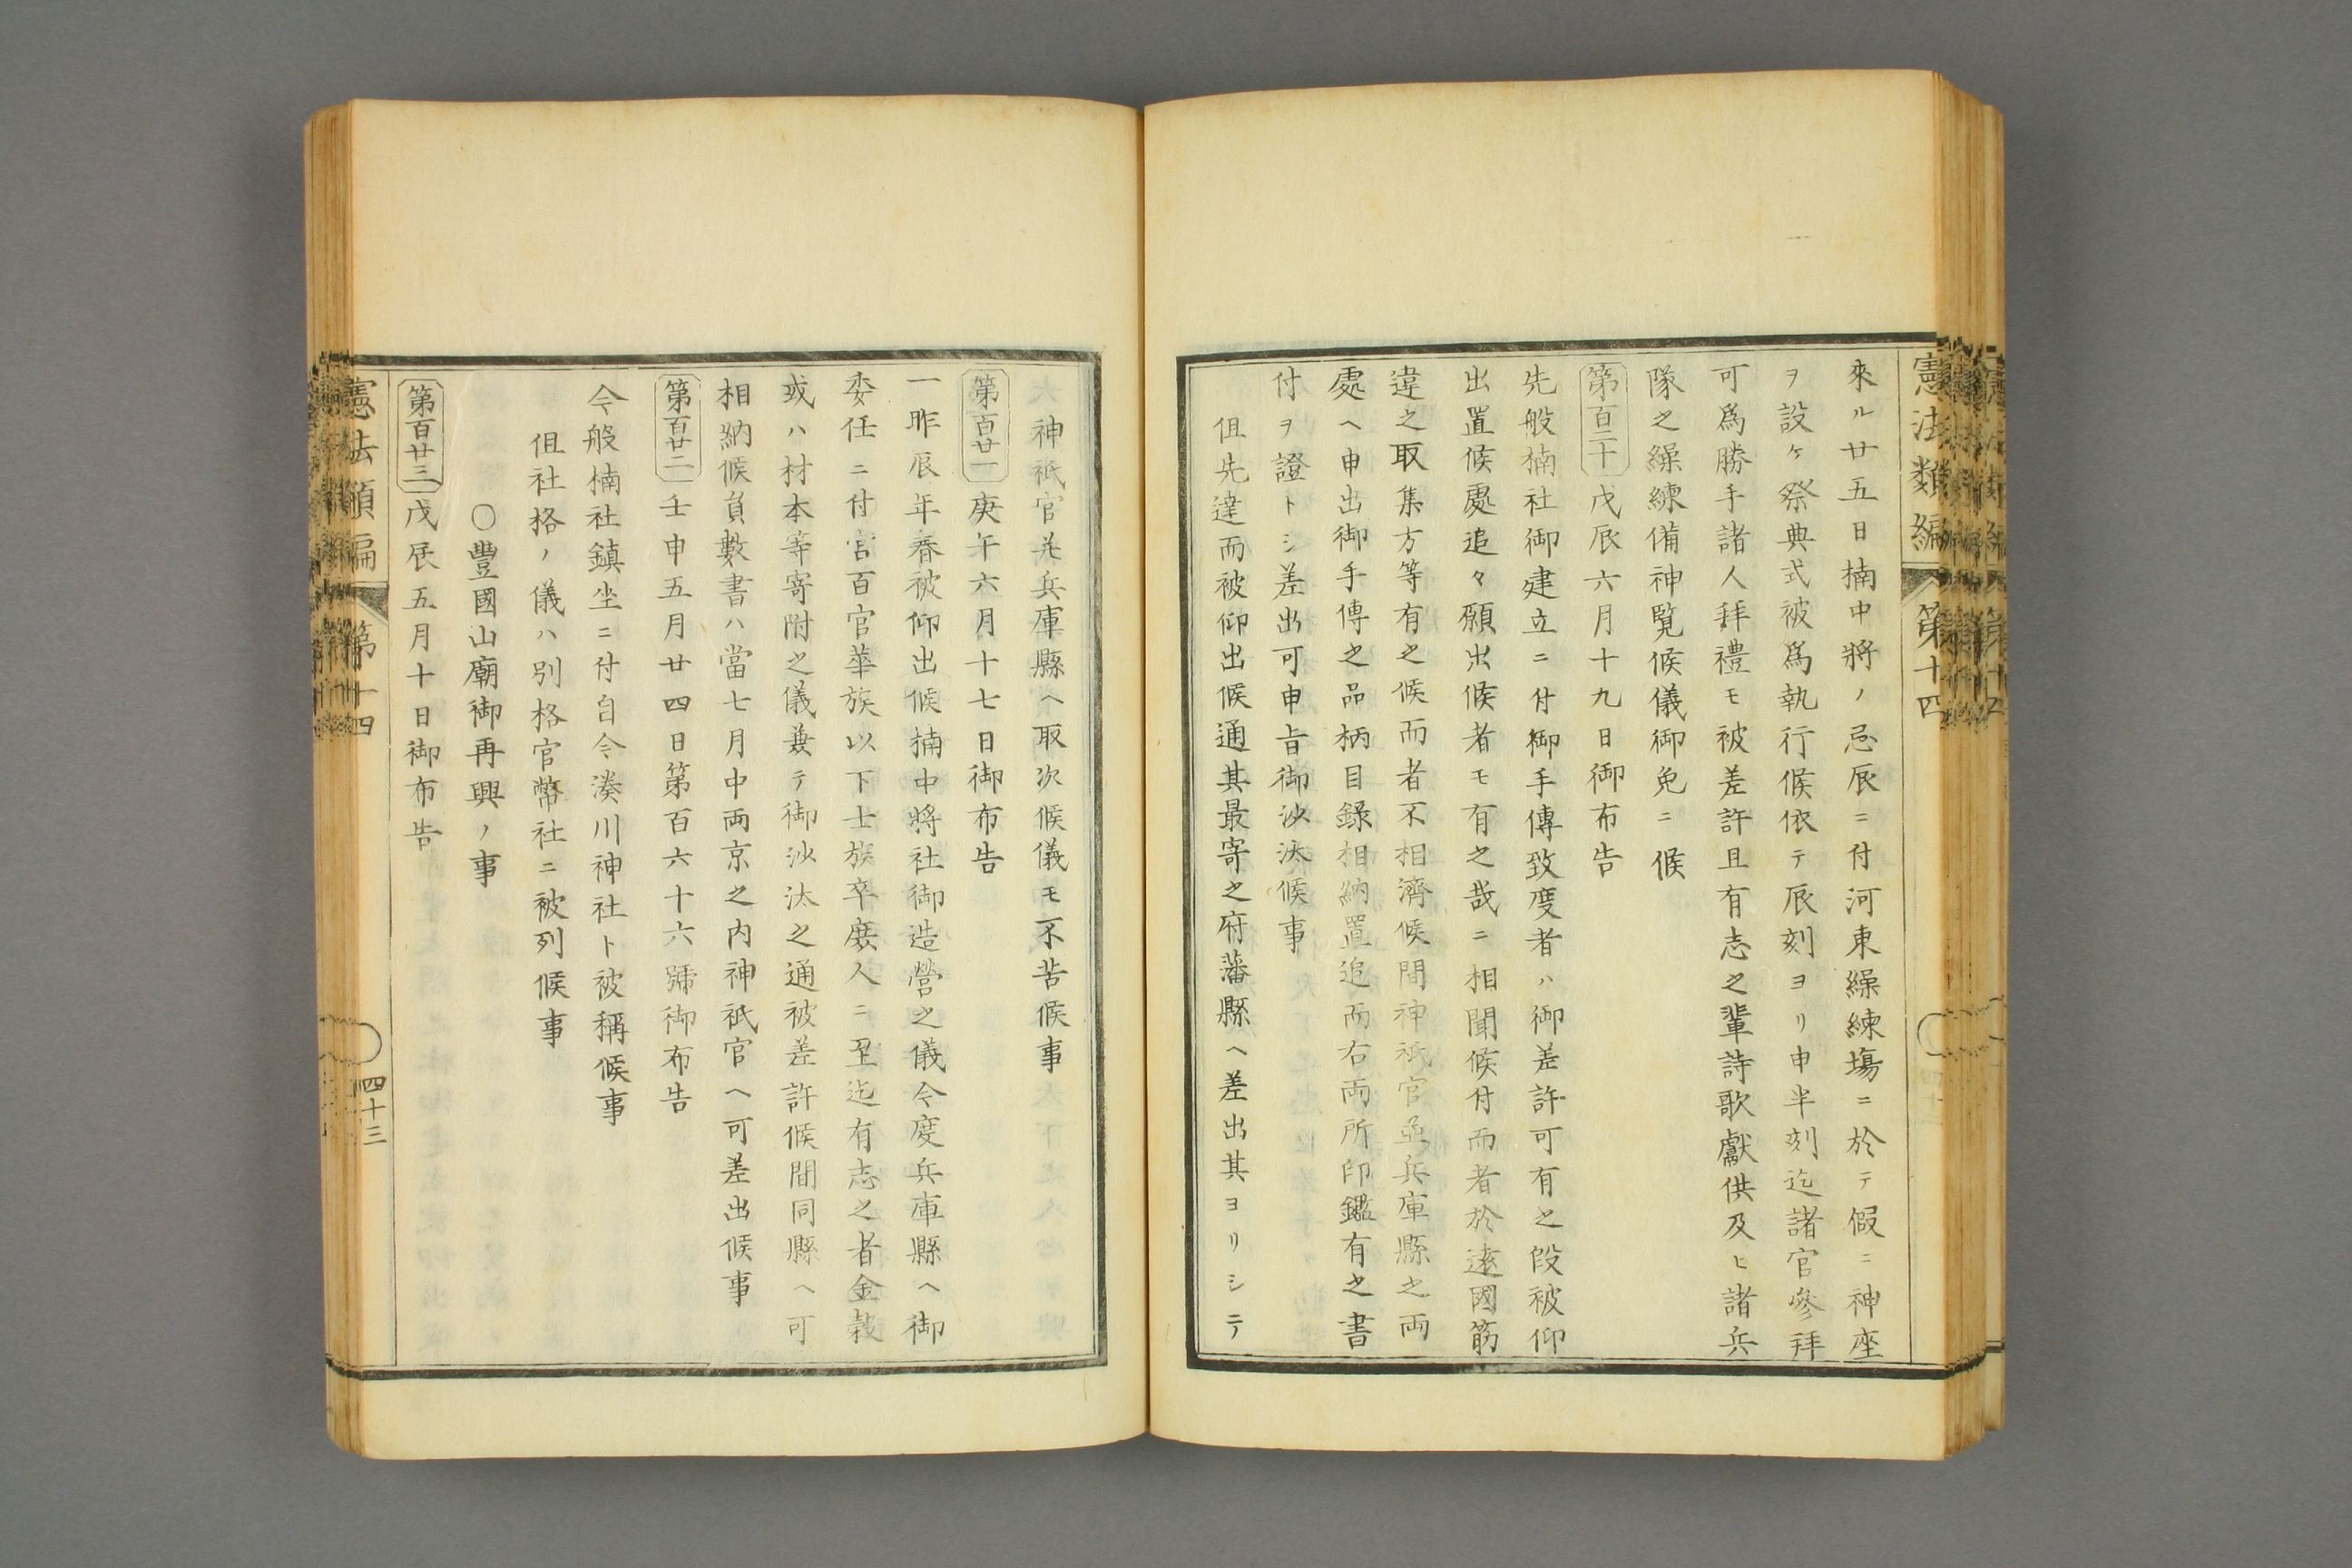 憲法類編 第十四
來ル廿五日楠中將ノ忌辰ニ付河東繰練塲ニ於テ假ニ神座
ヲ設ケ祭典式被爲執行候依テ辰刻ヨリ申半刻迄諸官參拜
可爲勝手諸人拜禮モ被差許且有志之輩詩歌獻供及ヒ諸兵
隊之繰練備神覽候儀御免ニ候
第百二十 戊辰六月十九日御布告
先般楠社御建立ニ付御手傳致度者ハ御差許可有之段被仰
出置候處追々願出候者モ有之哉ニ相聞候付而者於遠國筋
違之取集方等有之候而者不相濟候間神祇官並兵庫縣之両
處ヘ申出御手傳之品柄目録相納置追而右両所印鑑有之書
付ヲ證トシ差出可申旨御沙汰候事
但先達而被仰出候通其最寄之府藩縣ヘ差出其ヨリシテ
神祇官并兵庫縣ヘ取次候儀モ不苦候事
第百廿一 庚午六月十七日御布告
一昨辰年春被仰出候楠中將社御造營之儀今度兵庫縣ヘ御
委任ニ付官百官華族以下士族卒庻人ニ至迄有志之者金穀
或ハ材本等寄附之儀兼テ御沙汰之通被差許候間同縣ヘ可
相納候員數書ハ當七月中両京之内神祇官ヘ可差出候事
第百廿二 壬申五月廿四日第百六十六號御布告
今般楠社鎮坐ニ付自今湊川神社ト被稱候事
但社格ノ儀ハ別格官幣社ニ被列候事
〇豐國山廟御再興ノ事
第百廿三 戊辰五月十日御布告
憲法類編 第十四
四十三